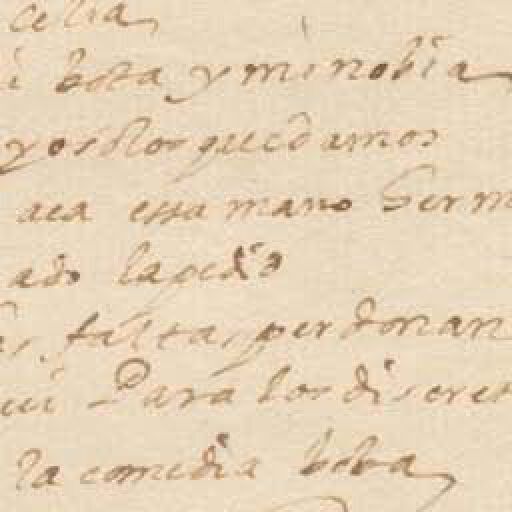 celia
i boba y mi nobia
yo solos quedamos
aca essa mano herm
ado la pedis
as faltas perdonan
ui Para los discret
la comedia boba